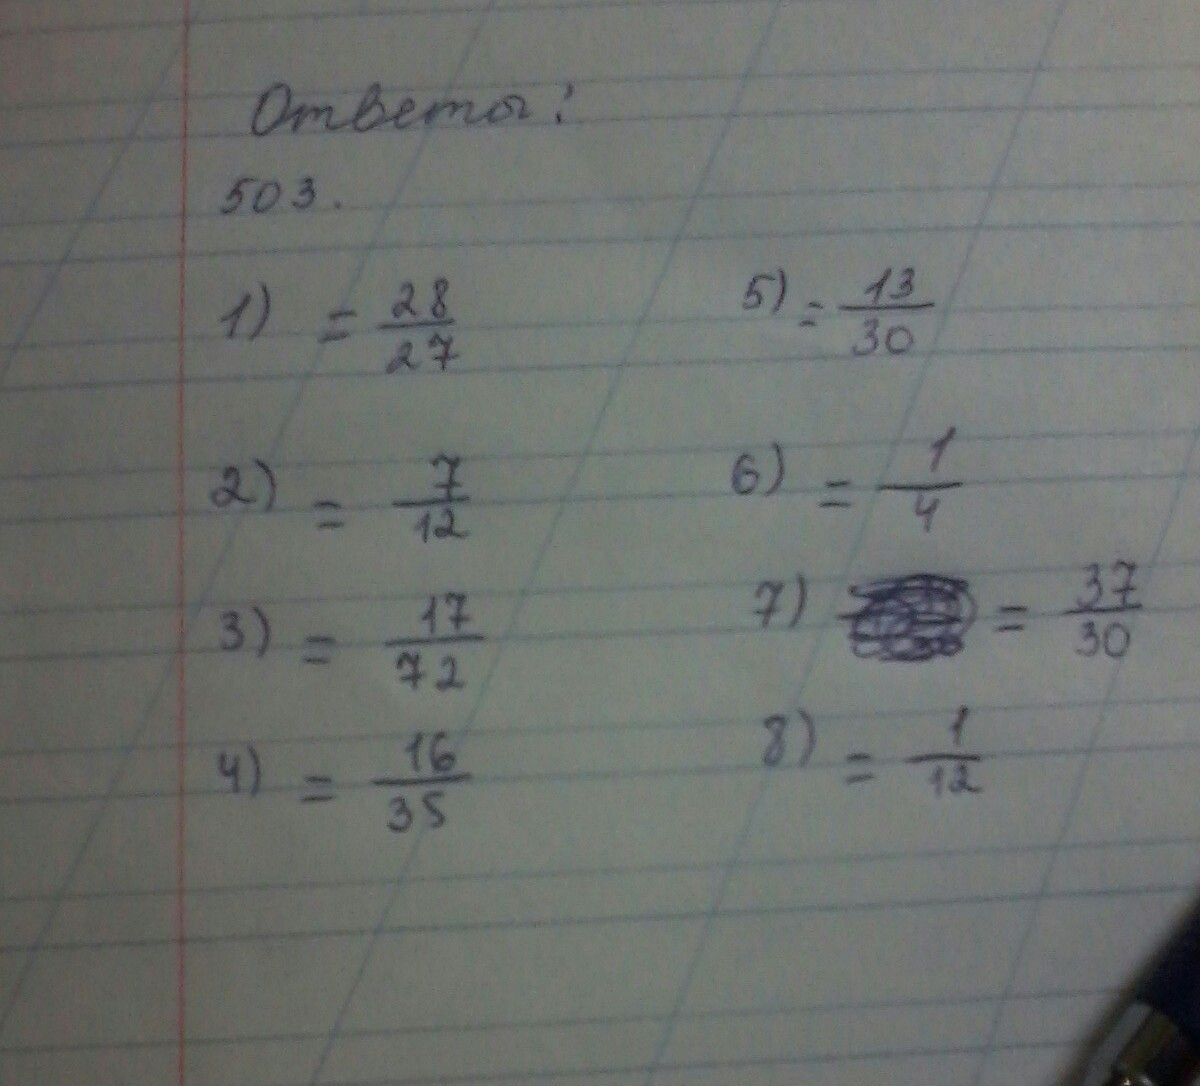 Ответы:
503.
1) = 28/27
2) = 7/12
3) = 17/72
4) = 16/35
5) = 13/30
6) = 1/4
7) = 37/30
8) = 1/12